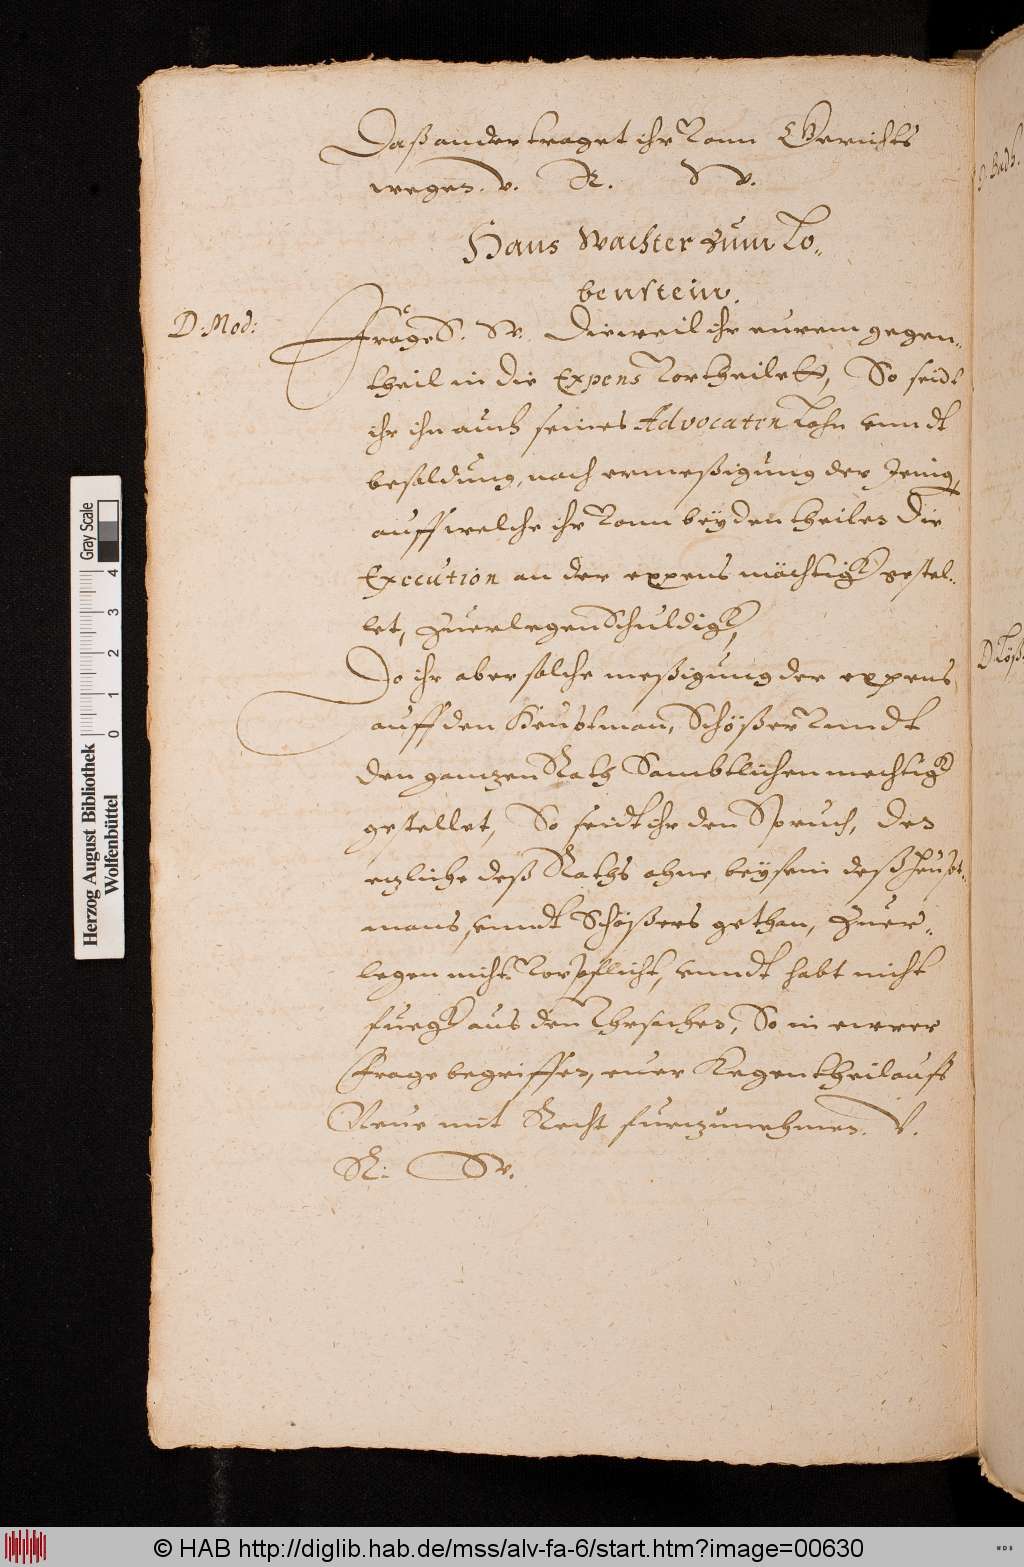 Daß ander traget ihr Vonn Gerichts
wegen. v. R. S v.
Hans Wachter zum Lo-
benstein.
D. Mod:
Frage S. Sv. Dieweil ihr eurem gegen-
theil in die Expens Vortheilet, So seidt
ihr ihn auch seines Advocaten Lohn vnndt
besoldung, nach ermeßigung der Jenig,
auff welche ihr Vonn beÿden theilen Die
Execution an der expens mächtigk gestel-
let, Zuerlegen Schuldigk,
Do ihr aber solche meßigung der expens
auff den Heubtman, Schößer Vnndt
den gantzen Rath Sambtlichen mechtigk
gestellet, So seidt ihr den Spruch, den
etzliche deß Raths ohne beysein deß Heubt-
mans, vnndt Schößers gethan, Zuer-
legen nicht Vorpflicht, vnndt habt nicht
fueg aus den Vhrsachen, So in ewrer
Frage begriffen, euer Kegentheil aufs
Neue mit Recht furzunehmen. V.
R: Sv.
D. Badh.
D Löß
Herzog August Bibliothek
Wolfenbüttel
Gray Scale
0 1 2 3 4
© HAB http://diglib.hab.de/mss/alv-fa-6/start.htm?image=00630
WDB